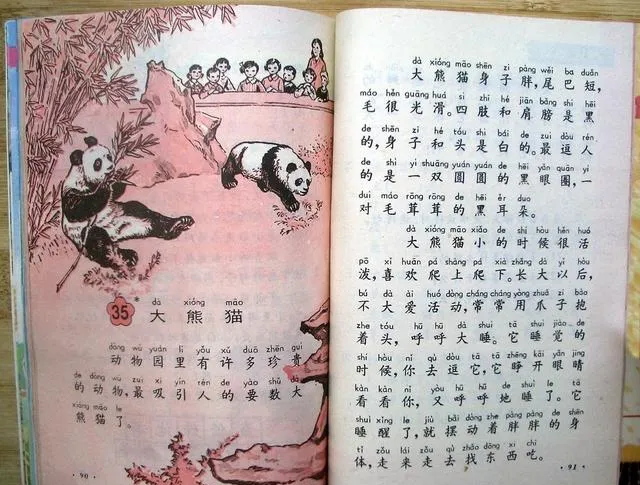 dà xióng māo
35* 大熊猫
dòng wù yuán lǐ yǒu xǔ duō zhēn guì
动物园里有许多珍贵
de dòng wù zuì xī yǐn rén de yào shǔ dà
的动物,最吸引人的要数大
xióng māo le
熊猫了。
·90·
dà xióng māo shēn zi pàng wěi ba duǎn
大熊猫身子胖,尾巴短,
máo hěn guāng huá sì zhī hé jiān bǎng shì hēi
毛很光滑。四肢和肩膀是黑
de shēn zi hé tóu shì bái de zuì dòu rén
的,身子和头是白的。最逗人
de shì yì shuāng yuán yuán de hēi yǎn quān yí
的是一双圆圆的黑眼圈,一
duì máo rōng rōng de hēi ěr duo
对毛茸茸的黑耳朵。
dà xióng māo xiǎo de shí hòu hěn huó
大熊猫小的时候很活
pō xǐ huān pá shàng pá xià zhǎng dà yǐ hòu
泼,喜欢爬上爬下。长大以后,
bú dà ài huó dòng cháng cháng yòng zhuǎ zi bào
不大爱活动,常常用爪子抱
zhe tóu hū hū dà shuì tā shuì jiào de
着头,呼呼大睡。它睡觉的
shí hòu nǐ qù dòu tā tā zhēng kāi yǎn jing
时候,你去逗它,它睁开眼睛
kàn kàn nǐ yòu hū hū de shuì le tā
看看你,又呼呼地睡了。它
shuì xǐng le jiù bǎi dòng zhe pàng pàng de shēn
睡醒了,就摆动着胖胖的身
tǐ zǒu lái zǒu qù zhǎo dōng xi chī
体,走来走去找东西吃。
·91·